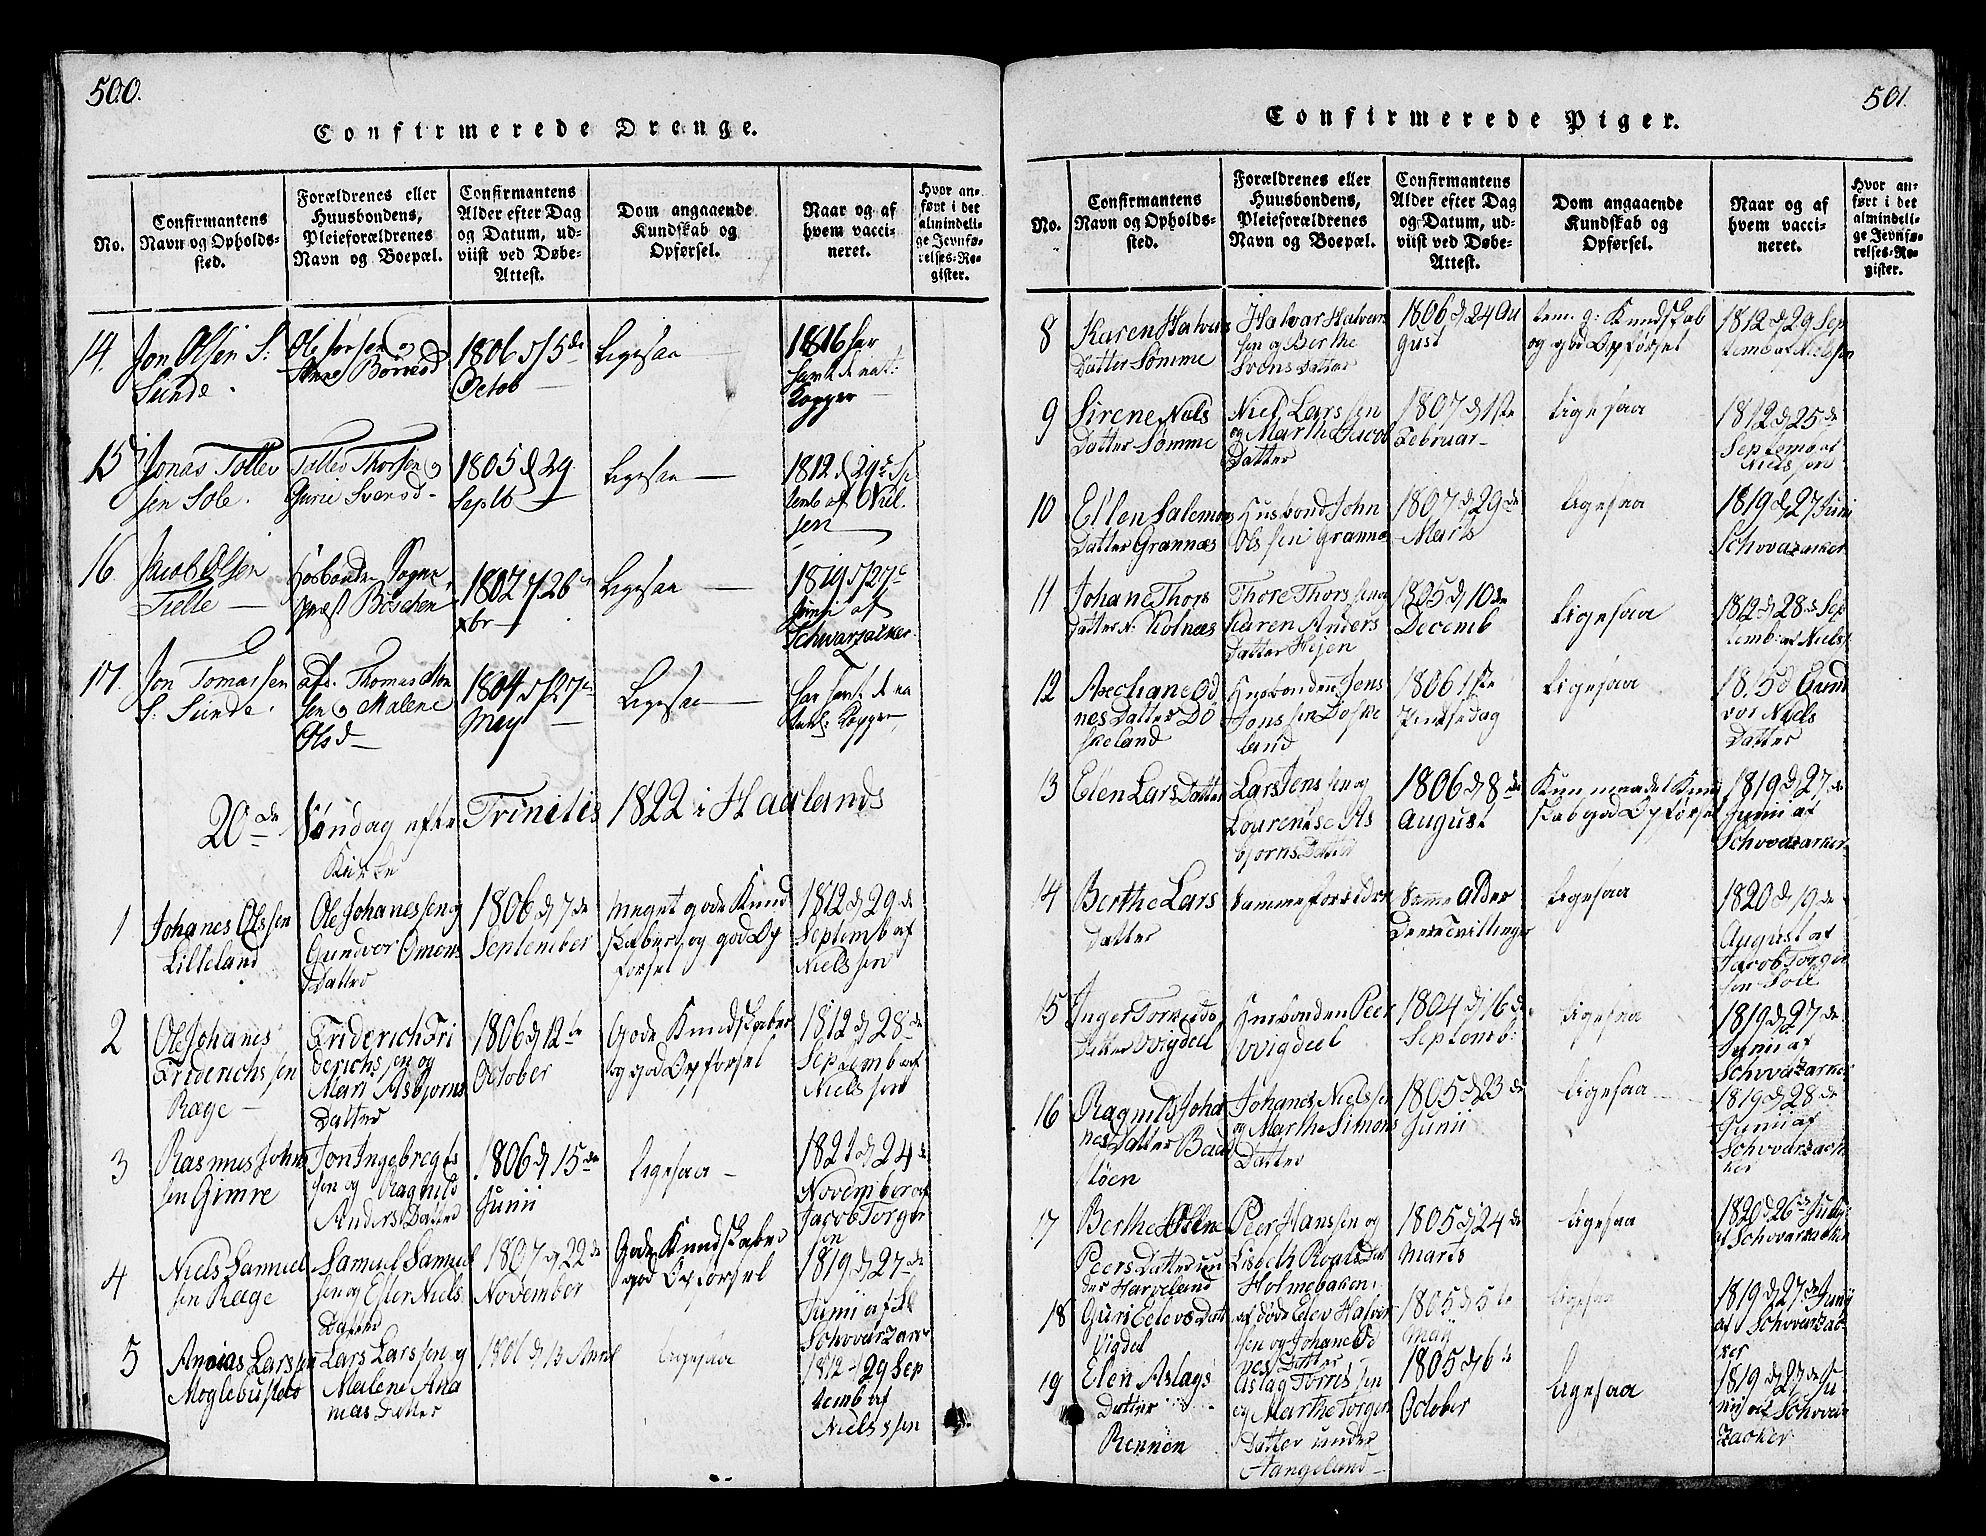 500.
Confirmerede Drenge.
No.
Confirmantens
Navn og Opholds-
sted.
Forældrenes eller
Huusbondens,
Pleieforældrenes
Navn og Boepæl.
Confirmantens
Alder efter Dag
og Datum, ud-
viist ved Døbe-
Attest.
Dom angaaende
Kundskab og
Opførsel.
Naar og af
hvem vacci-
neret.
Hvor an-
ført i det
almindeli-
ge Jevnfø-
relses-Re-
gister.
14.
Jon Olsen S:
Sunde.
1806 d 15de
Octob
Ligesaa
1816 har
havt de nat:
Kopper
15
Jonas Tollev
sen Sole.
Tollev Thorsen og
Gurie Svensd
1805 d 29
Septb
Ligesaa
1812 d 29de Sep
temb af Niel
sen
16
Jacob Olsen
Tielte
1807 d 26
xbr
Ligesaa
1819 d 27de
Junii af
Schwarzacker
17.
Jon Tomassen
S. Sunde.
afd. Thomas
sen og Malene
Olsd
1804 d 27de
May
Ligesaa
har havt de na
Kopper
20de Søndag efter Trinitis 1822 i Haalands
Kirke
1
Johanes Olssen
Lilleland
Ole Johanessen og
Gundvor Omons
Datter
1806 d 7de
September
meget gode Kund
skaber og god Op
førsel
1812 d 29de
Septemb af
Nielssen
2
Ole Johanes
Friderichssen
Ræge
Friderich Fri
derichssen og
Mari Asbjørns
Datter
1806 d 12te
October
Gode Kundskaber
og god Opførsel
1812 d 28de
Septemb af
Nielssen
3
Rasmus John
sen Gimre
Jon Ingebregts
sen og Ragnild
Anders Datter
1806 d 15de
Junii
ligesaa
1821 d 24de
November af
Jacob Torger
sen
4
Niels Samuel
sen Ræge
Samuel Samuel
sen og Ester Niels
Datter
1807 d 22de
November
Gode Kundskaber
god Opførsel
1819 d 27de
Junii af
Schovarzacker
5
Ananias Larssen
Møglebusted
Lars Larssen og
Malene Ana
nias Datter
1806 d 13 April
Ligesaa
1812 29 Sep
temb af
Nielssen
501.
Confirmerede Piger.
No.
Confirmantens
Navn og Opholds-
sted.
Forældrenes eller
Huusbondens,
Pleieforældrenes
Navn og Boepæl.
Confirmantens
Alder efter Dag
og Datum, ud-
viist ved Døbe-
Attest.
Dom angaaende
Kundskab og
Opførsel.
Naar og af
hvem vacci-
neret.
Hvor an-
ført i det
almindeli-
ge Jevnfø-
relses-Re-
gister.
8
Karen Halvors
Datter Sømme
Halvor Halvor
sen og Berthe
Svens Datter
1806 d 24 Au
gust
tem. g: Kundskab
og god Opførsel
1812 d 29 Sep
temb af Nielssen
9
Sirene Niels
Datter Sømme
Niels Larssen
og Marthe Jacob
Datter
1807 d 1ste
Februar
ligesaa
1812 d 25de
Septemb af
Nielssen
10
Ellen Salemons
Datter Grannæs
Husbond John
Olssen Grannæs
1807 d 29de
Marts
ligesaa
1819 d 27 Junii
Schovazacker
11
Johane Thors
Datter N. Kolnæs
Thore Thorssen og
Karen Anders
Datter
1805 d 10de
Decemb
ligesaa
1812 d 28de Sep
temb: af Niels
12
Axeliane Od
nes Datter Dö
skeland
Huusbonden Jens
Jonssen Döske
land
1806 1ste
Pindsedag
ligesaa
1815 d Gund
vor Niels
Datter
13
Elen Lars Datter
Lars Jenssen og
Lourentse As
bjørns Datter
1806 d 8de
August
Kun maadel Kund
skab god Opførsel
1819 d 27de
Junii af
Schovazarker
14
Berthe Lars
Datter
Samme forældre
Samme alder
Dere tvillinger
ligesaa
1820 d 19de
August af
Jacob Torger
sen Sole
15
Inger Torkilds
Datter Wigdeel
Huusbonden Peer
Wigdeel
1804 d 16de
Septemb:
ligesaa
1819 d 27de
Junii af
Schovazarker
16
Ragnild Joha
nes Datter Baad
støen
Johanes Nielssen
og Marthe Simons
Datter
1805 d 23de
Junii
ligesaa
1819 d 28de
Junii af
Schovarzach
ker
17
Berthe Elene
Peers Datter un
der Harveland
Peer Hanssen og
Lisbeth Roals Dat
Holmebaken.
1805 d 24de
Marts
ligesaa
1820 d 26de July
af Schovarzacker
18
Guri Eelevs Datt
Vigdel
af døde Elev Halvor
sen og Johane Od
nes Datter
1805 d 5te
Maij
ligesaa
1819 d 27de Junij
af Schovarzac
ker
19
Elen Aslags
Datter
Rennøn
Aslag Torrissen
og Marthe Torger
Datter under
Hangeland
1805 d 6te
October
ligesaa
1819 d 27de Ju
nij af Schovar
zacker